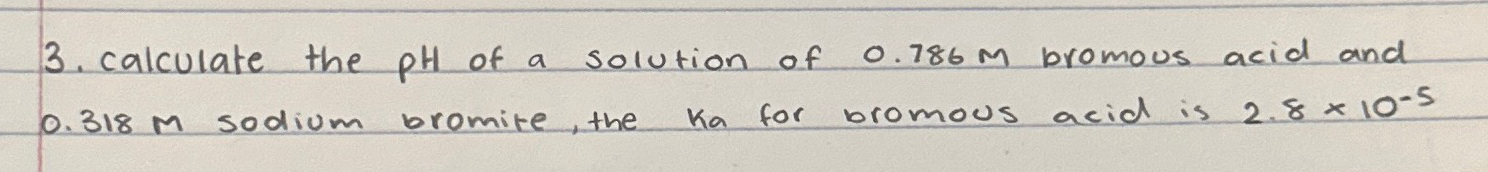 3. calculate the pH of a solution of 0.786 M bromous acid and
0.318 M sodium bromite, the Ka for bromous acid is 2.8 × 10⁻⁵